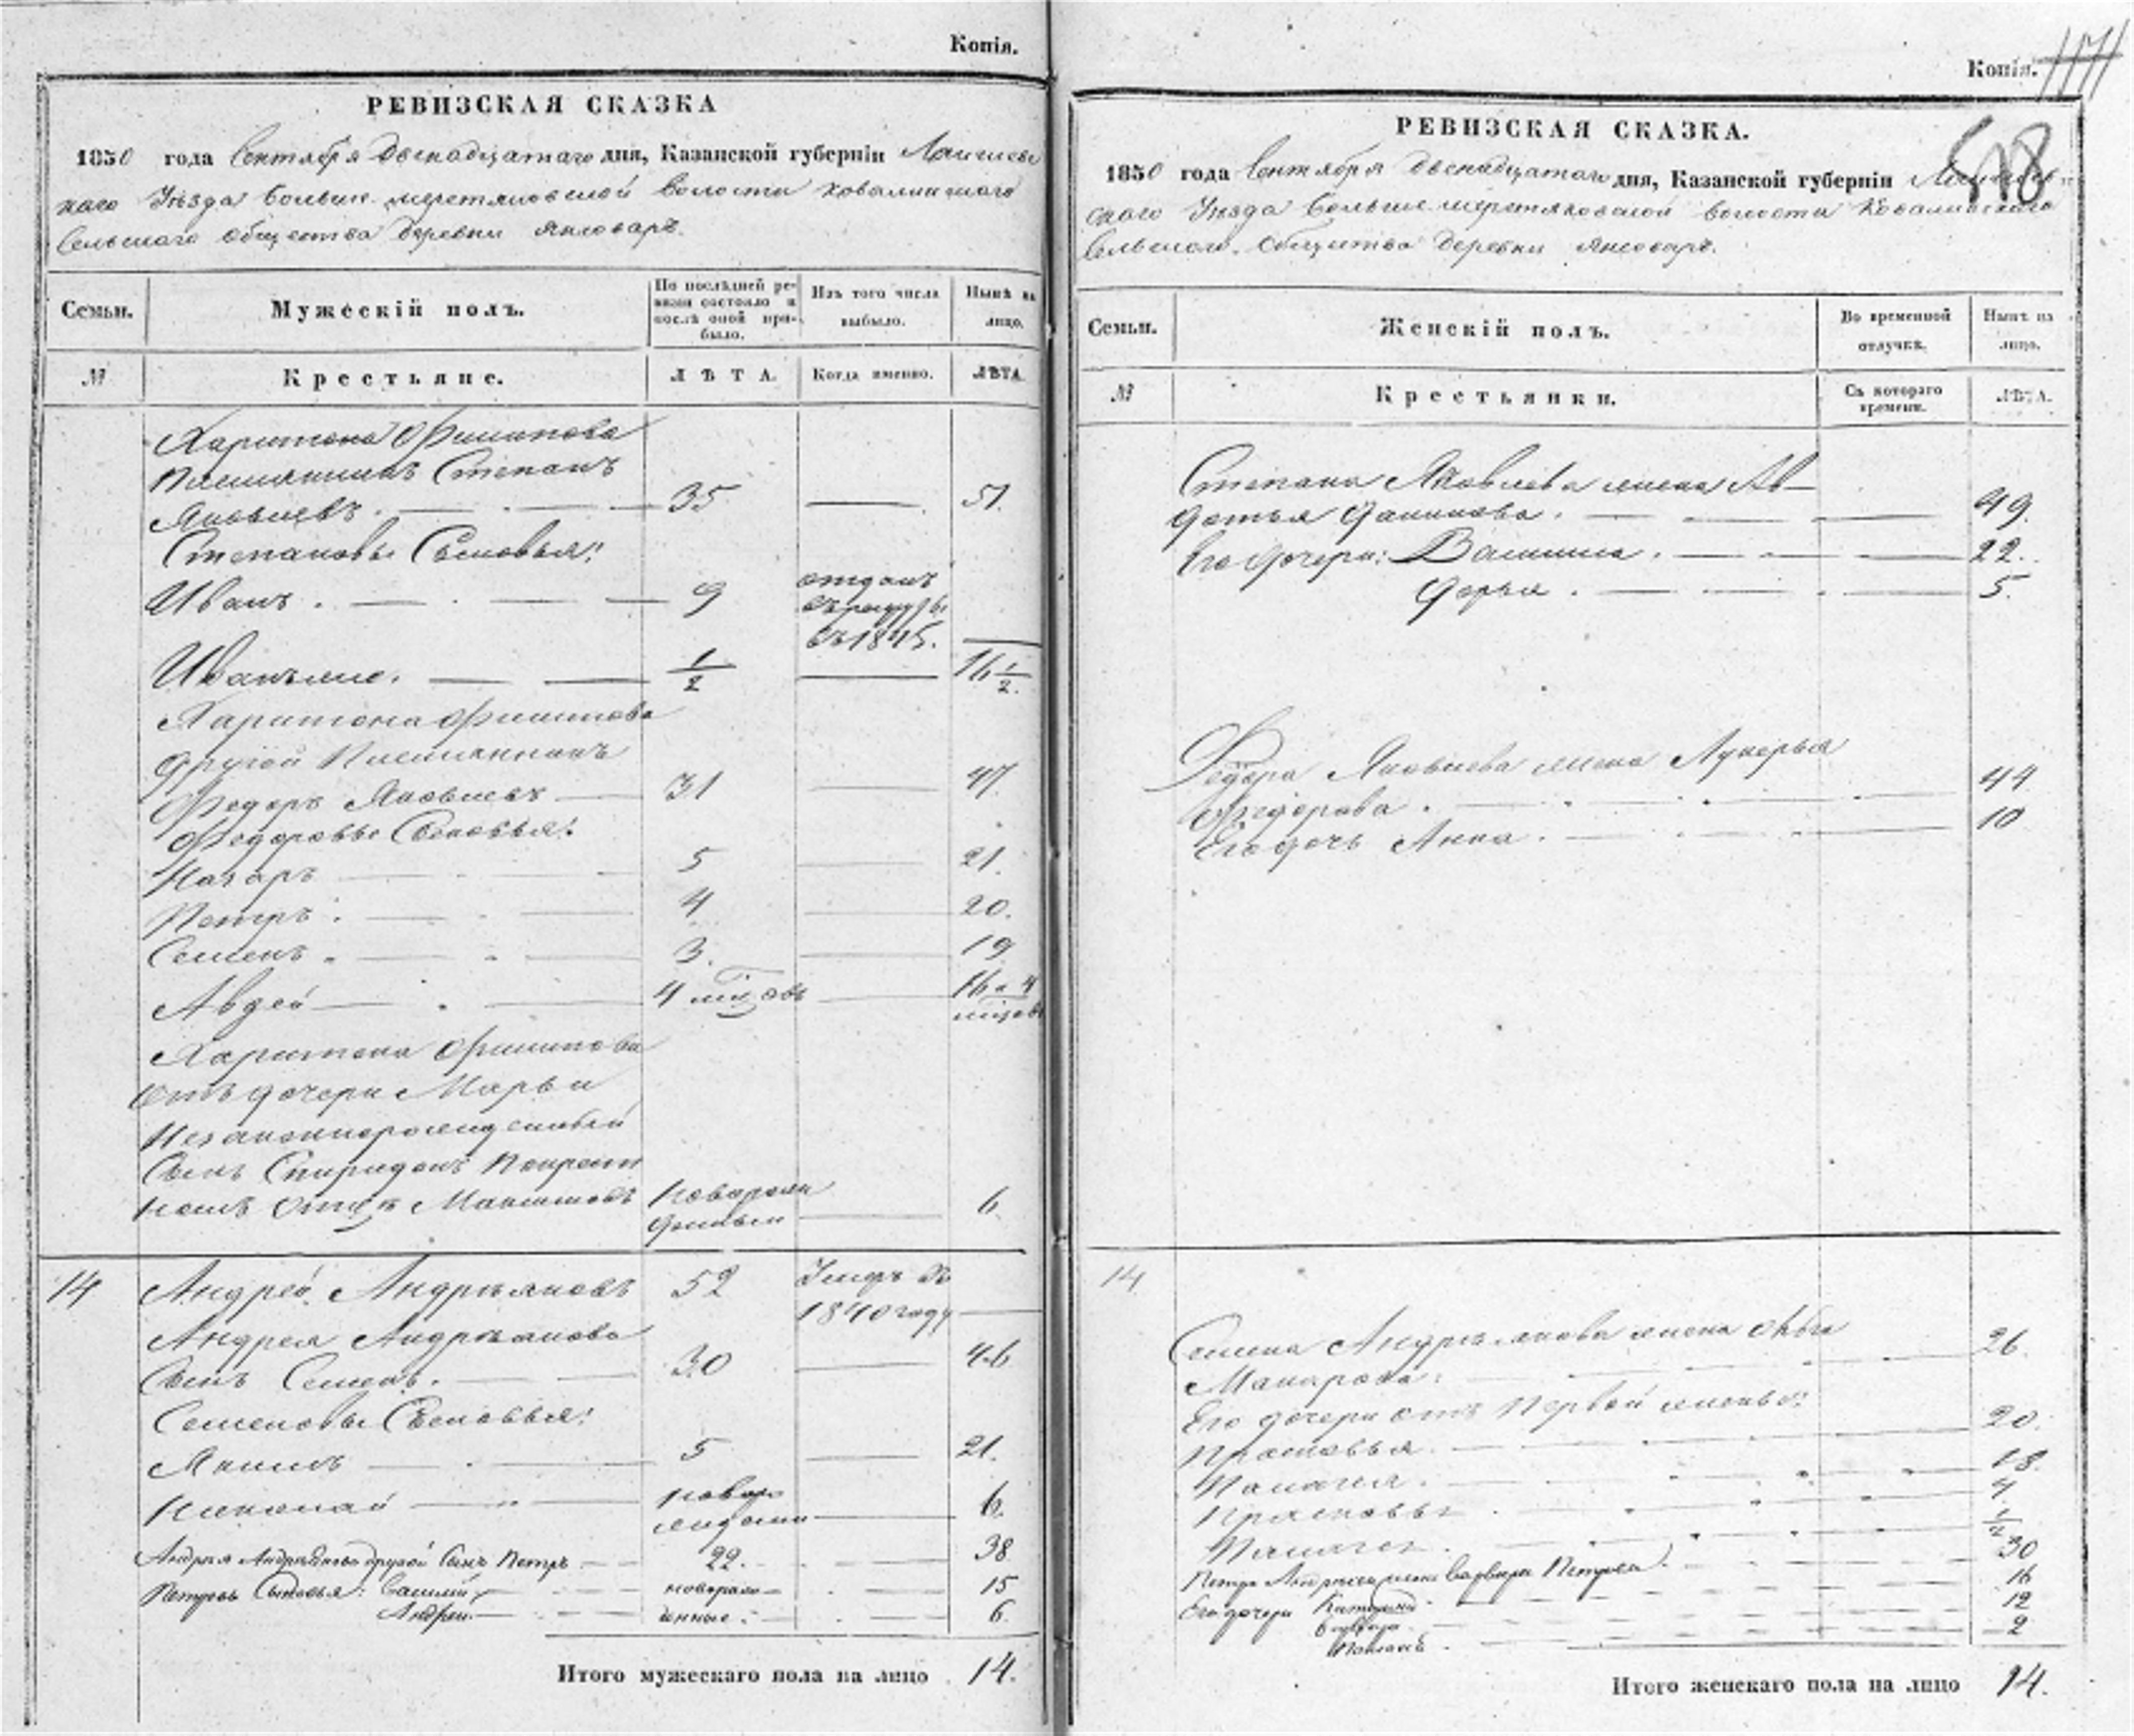 Копія.
РЕВИЗСКАЯ СКАЗКА
1850 года Сентября двенадцатаго дня, Казанской губерніи Лаишевс
каго Уѣзда Больше меретяковской волости Ковалинскаго
Сельскаго общества деревни Янсоваръ.
Семьи. Мужескій полъ. По послѣдней ре-
визіи состояло и
послѣ оной при-
было. Изъ того числа
выбыло. Нынѣ на
лицо.
№ Крестьяне. ЛѢТА. Когда именно. ЛѢТА.
Харитона Филипова
Племянникъ Степанъ
Яковлевъ. 35 51.
Степановы Сыновья:
Иванъ. 9 отданъ
въ рекруты
въ 1845.
Иванъ же. 1/2 16 1/2.
Харитона Филипова
другой Племянникъ
Федоръ Яковлевъ 31 47.
Федоровы Сыновья:
Назаръ 5 21.
Петръ. 4 20.
Семенъ. 3. 19
Авдей 4 мѣсяцовъ 16 и 4
мѣсяцов
Харитона Филипова
отъ дочери Марьи
Незаконнорожденный
Сынъ Спиридонъ По крестн
номъ отцѣ Максимовъ новорож
денный 6
14 Андрей Андреяновъ 52 Умеръ въ
1840 году
Андрея Андреянова
Сынъ Семенъ. 30 46
Семеновы Сыновья:
Якимъ 5 21.
Николай новоро
жденный 6.
Андрея Андреянова другой Сынъ Петръ 22. 38
Петровы Сыновья: Василий новорож- 15
Андрей. денные. 6.
Итого мужескаго пола на лицо 14.
Копія. 171
РЕВИЗСКАЯ СКАЗКА.
1850 года Сентября двенадцатаго дня, Казанской губерніи Лаишевс
скаго Уѣзда Больше меретяковской волости Ковалинскаго
Сельскаго Общества деревни Янсоваръ.
Семьи. Женскій полъ. Во временной
отлучкѣ. Нынѣ на
лицо.
№ Крестьянки. Съ котораго
времени. ЛѢТА.
Степана Яковлева жена Ав-
дотья Данилова. 49.
Его дочери: Васлиса. 22.
Дарья. 5.
Федора Яковлева жена Лукерья
Федорова. 44
Его дочь Анна. 10
14
Семена Андреянова жена
Макарова. 26.
Его дочери отъ Первой жены:
Прасковья. 20.
Палагея. 18.
Прасковья. 4
Палагея. 1/2
Петра Андреева жена Варвара Петрова. 30
Его дочери Катерина 16
Варвара 12
Палагея. 2
Итого женскаго пола на лицо 14.